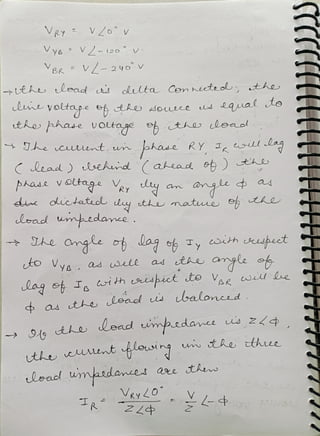 V_RY = V∠0° V
V_YB = V∠-120° V
V_BR = V∠-240° V
→ the load is delta connected, the
line voltage of the source is equal to
the phase voltage of the load.
→ The current in phase RY, I_R will lag
(lead) behind (ahead of) the
phase voltage V_RY by an angle ϕ as
dictated by the nature of the
load impedance.
→ The angle of lag of I_Y with respect
to V_YB, as well as the angle of
lag of I_B with respect to V_BR will be
ϕ as the load is balanced.
→ If the load impedance is Z∠ϕ,
the current flowing in the three
load impedances are then
I_R = V_RY∠0° / Z∠ϕ = V/Z ∠-ϕ